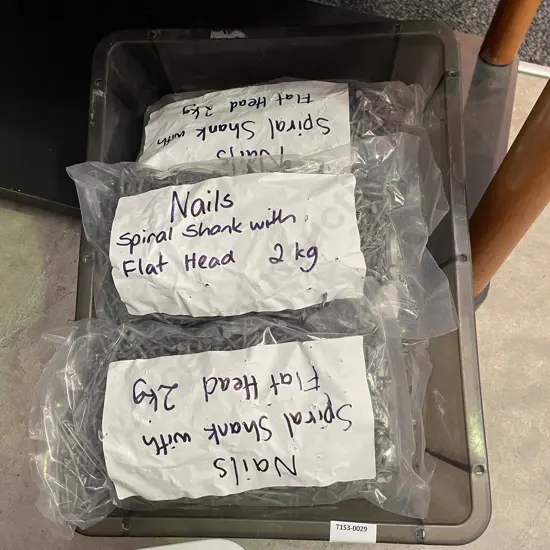 Nails
Spiral Shank with
Flat Head 2kg
Nails
Spiral Shank with
Flat Head 2 kg
Nails
Spiral Shank with
Flat Head 2kg
T153-0029